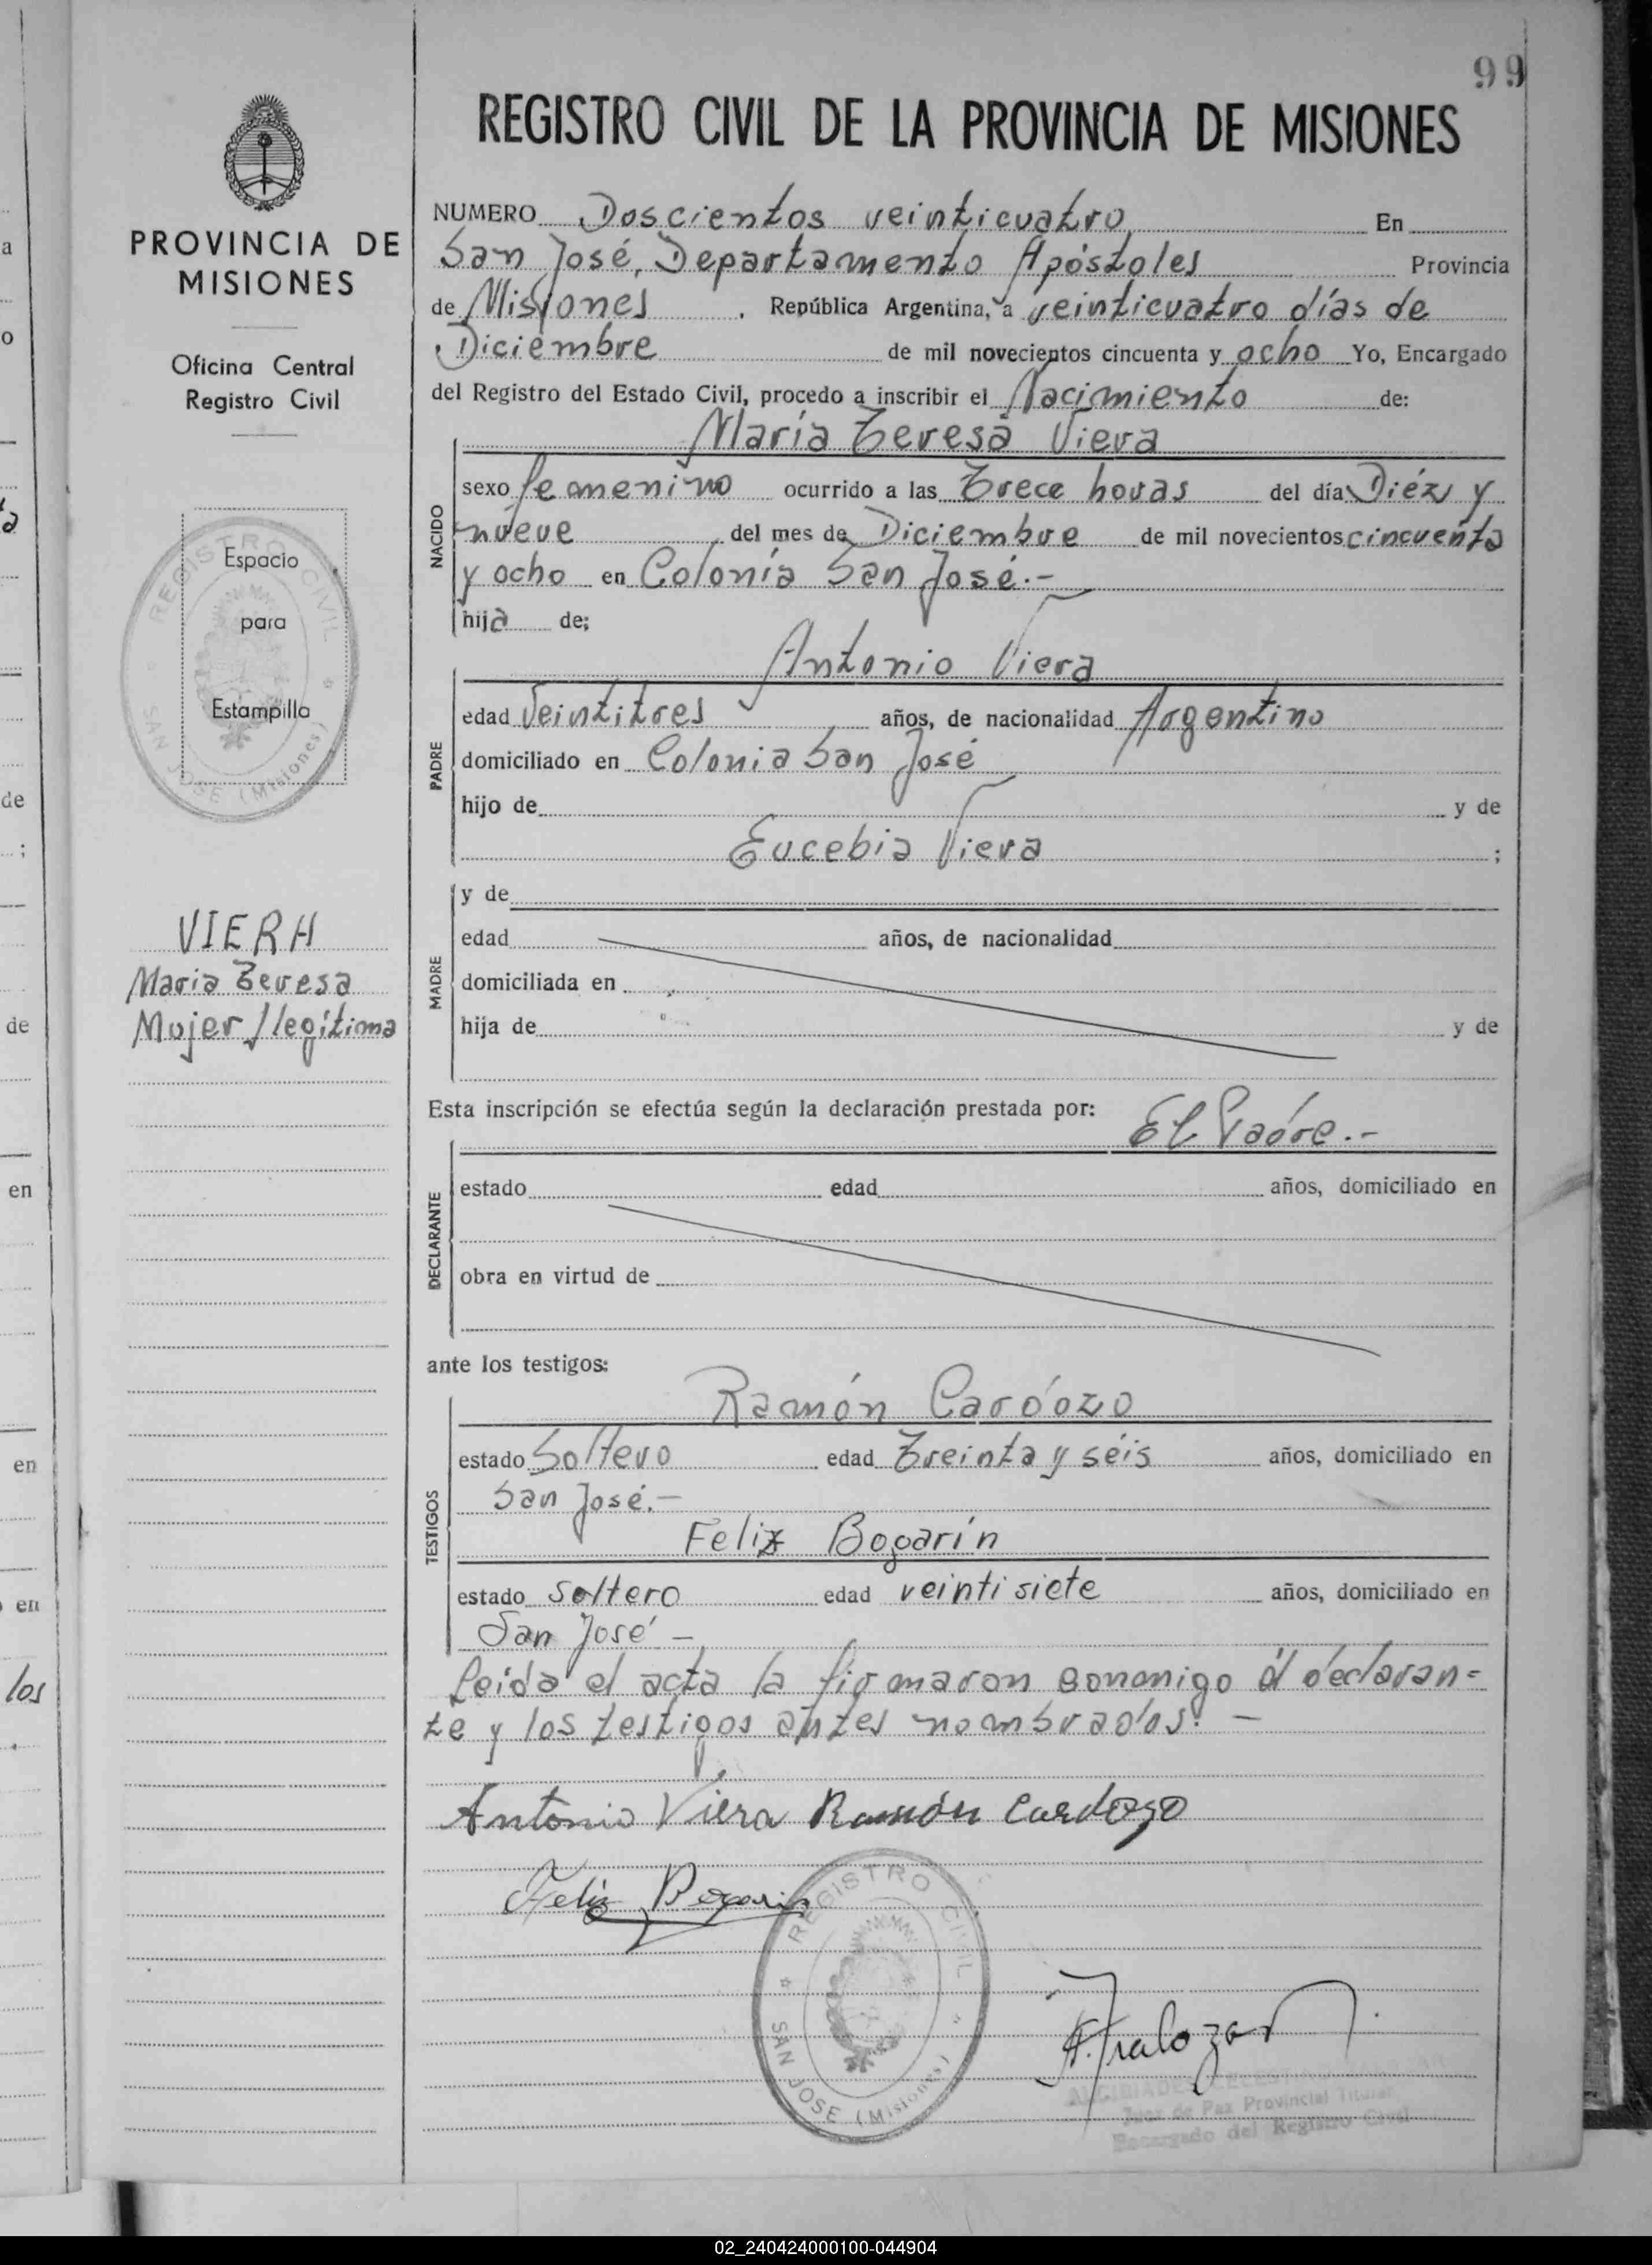 99
REGISTRO CIVIL DE LA PROVINCIA DE MISIONES
PROVINCIA DE
MISIONES
Oficina Central
Registro Civil
Espacio
para
Estampilla
REGISTRO CIVIL
SAN JOSE (Misiones)
VIERA
Maria Teresa
Mujer Ilegítima
NUMERO Doscientos veinticuatro En
San José, Departamento Apóstoles Provincia
de Misiones . República Argentina, a veinticuatro días de
Diciembre de mil novecientos cincuenta y ocho Yo, Encargado
del Registro del Estado Civil, procedo a inscribir el Nacimiento de:
María Teresa Viera
NACIDO
sexo femenino ocurrido a las Trece horas del día Diéz y
nueve del mes de Diciembre de mil novecientos cincuenta
y ocho en Colonia San José.-
hija de;
Antonio Viera
PADRE
edad Veintitres años, de nacionalidad Argentino
domiciliado en Colonia San José
hijo de y de
Eucebia Viera ;
MADRE
y de
edad años, de nacionalidad
domiciliada en
hija de y de
Esta inscripción se efectúa según la declaración prestada por: El Padre.-
DECLARANTE
estado edad años, domiciliado en
obra en virtud de
ante los testigos:
Ramón Cardozo
TESTIGOS
estado Soltero edad Treinta y séis años, domiciliado en
San José.-
Felix Bogarín
estado soltero edad veintisiete años, domiciliado en
San José -
Leida el acta la firmaron conmigo el declaran=
te y los testigos antes nombrados. -
Antonio Viera Ramón Cardozo
Felix Bogarin
REGISTRO CIVIL
SAN JOSE (Misiones)
Juez de Paz Provincial Titular
Encargado del Registro Civil
02_240424000100-044904